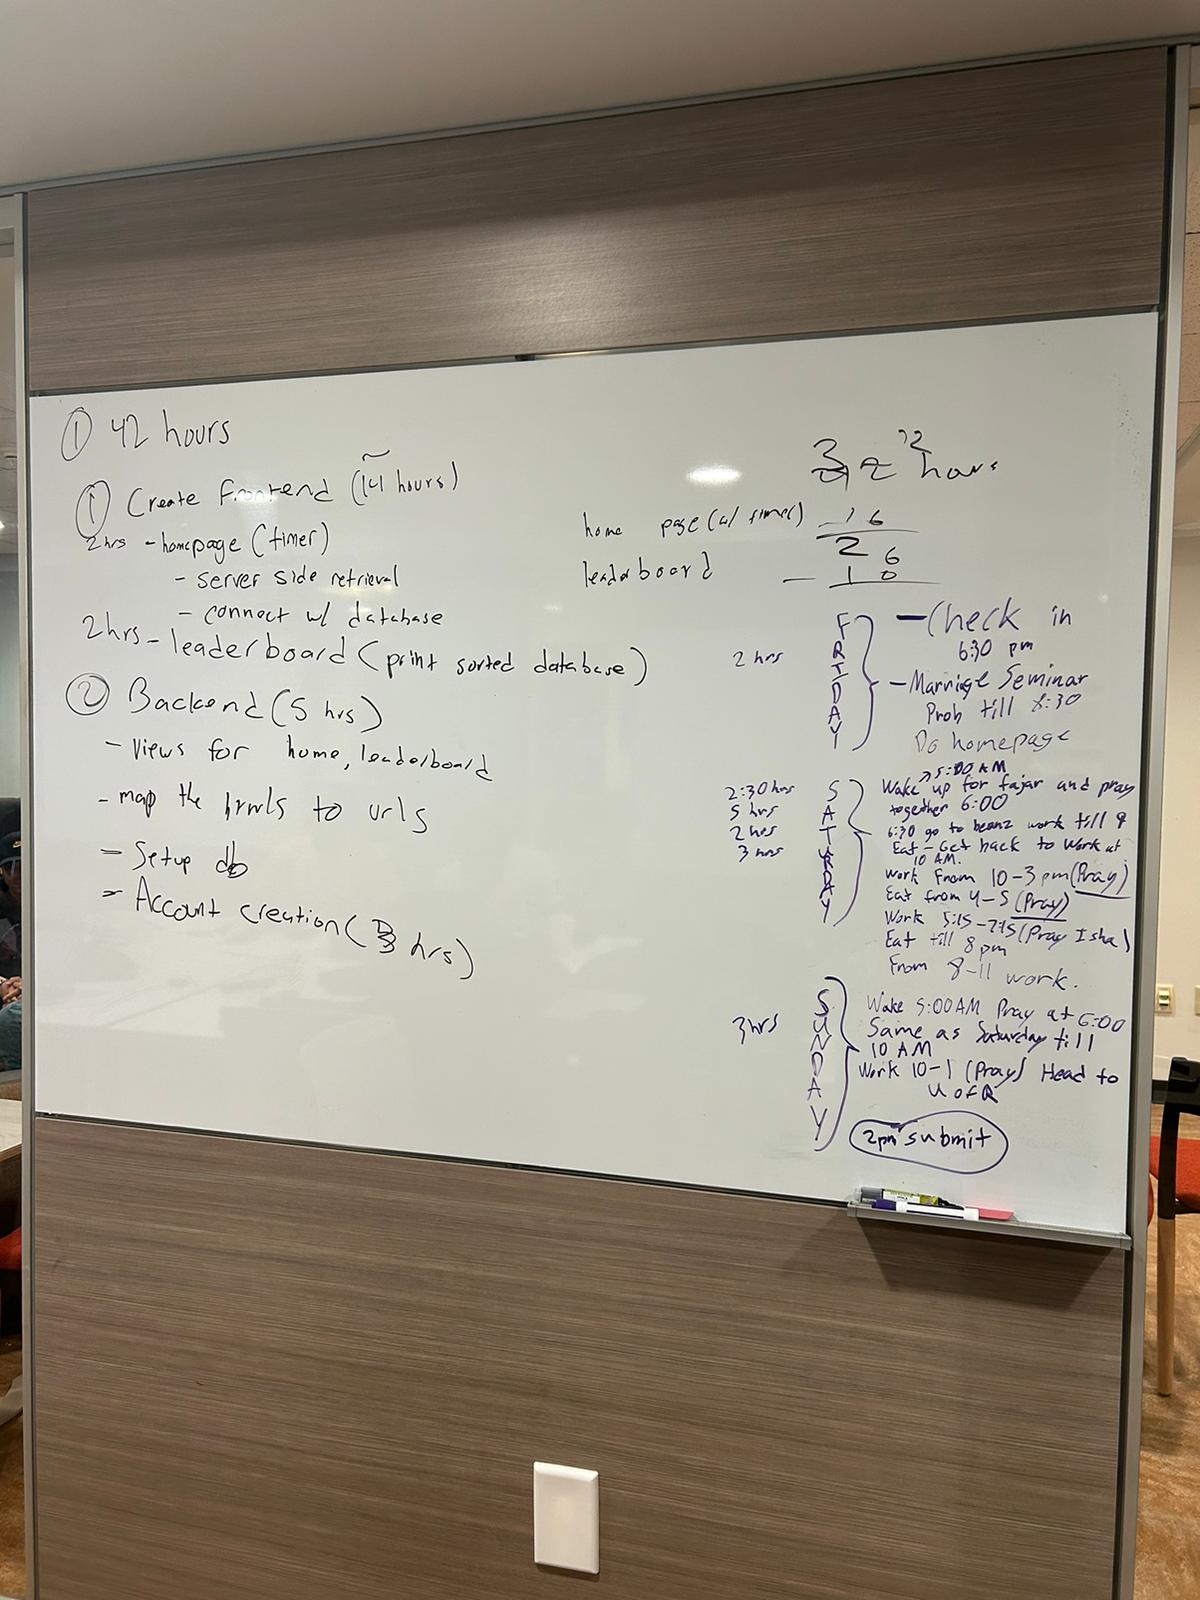 ① 42 hours
① Create frontend (14 hours)
2hrs - homepage (timer)
- server side retrieval
- connect w/ database
2hrs - leaderboard (print sorted database)
② Backend (5 hrs)
- views for home, leaderboard
- map the to urls
- Setup db
- Account creation (3 hrs)
12
hours
home page (w/ timer) - 16
26
leaderboard - 10
FRIDAY
2 hrs
- Check in
6:30 pm
- Marriage Seminar
Prob till 8:30
Do homepage
SATURDAY
2:30 hrs
5 hrs
2 hrs
3 hrs
5:00 AM
Wake up for fajar and pray
together 6:00
6:30 go to beanz work till 9
Eat - Get back to work at
10 AM.
Work from 10-3 pm (Pray)
Eat from 4-5 (Pray)
Work 5:15-7:15 (Pray Isha)
Eat till 8 pm
From 8-11 work.
SUNDAY
3 hrs
Wake 5:00 AM Pray at 6:00
Same as Saturday till
10 AM
Work 10-1 (Pray) Head to
U of R
2pm submit